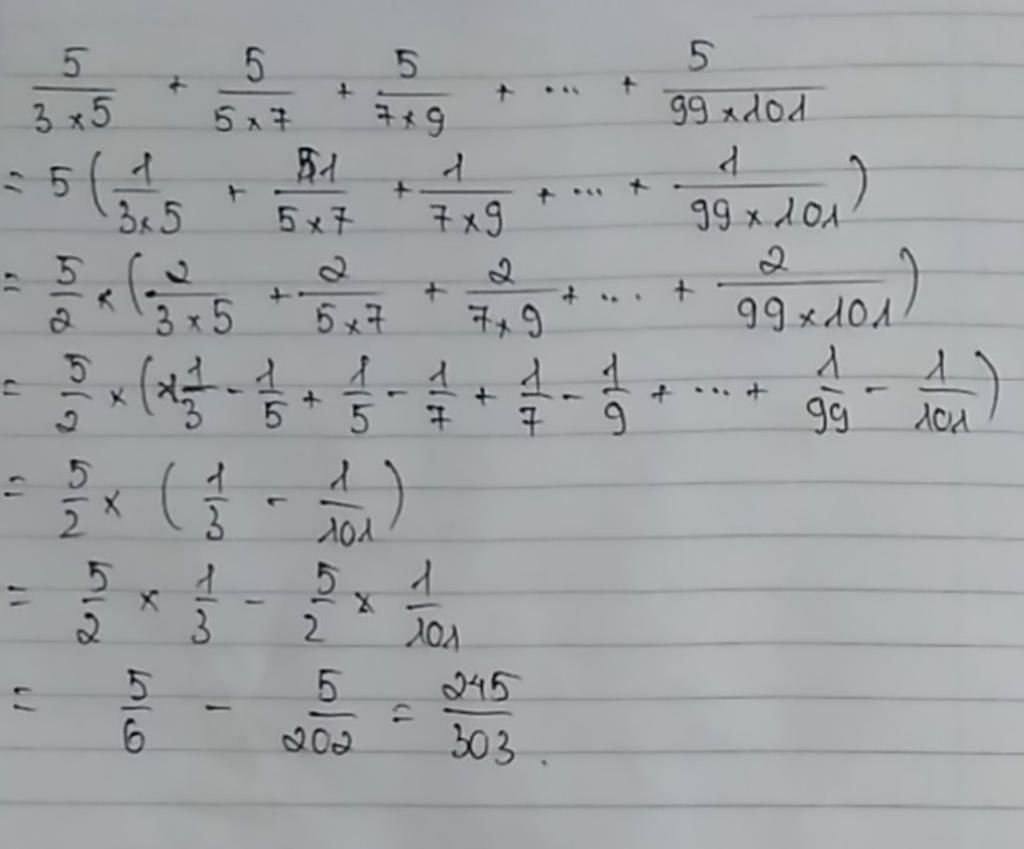 5/(3×5) + 5/(5×7) + 5/(7×9) + ... + 5/(99×101)
= 5 (1/(3×5) + 1/(5×7) + 1/(7×9) + ... + 1/(99×101))
= 5/2 × (2/(3×5) + 2/(5×7) + 2/(7×9) + ... + 2/(99×101))
= 5/2 × (1/3 - 1/5 + 1/5 - 1/7 + 1/7 - 1/9 + ... + 1/99 - 1/101)
= 5/2 × (1/3 - 1/101)
= 5/2 × 1/3 - 5/2 × 1/101
= 5/6 - 5/202 = 245/303.